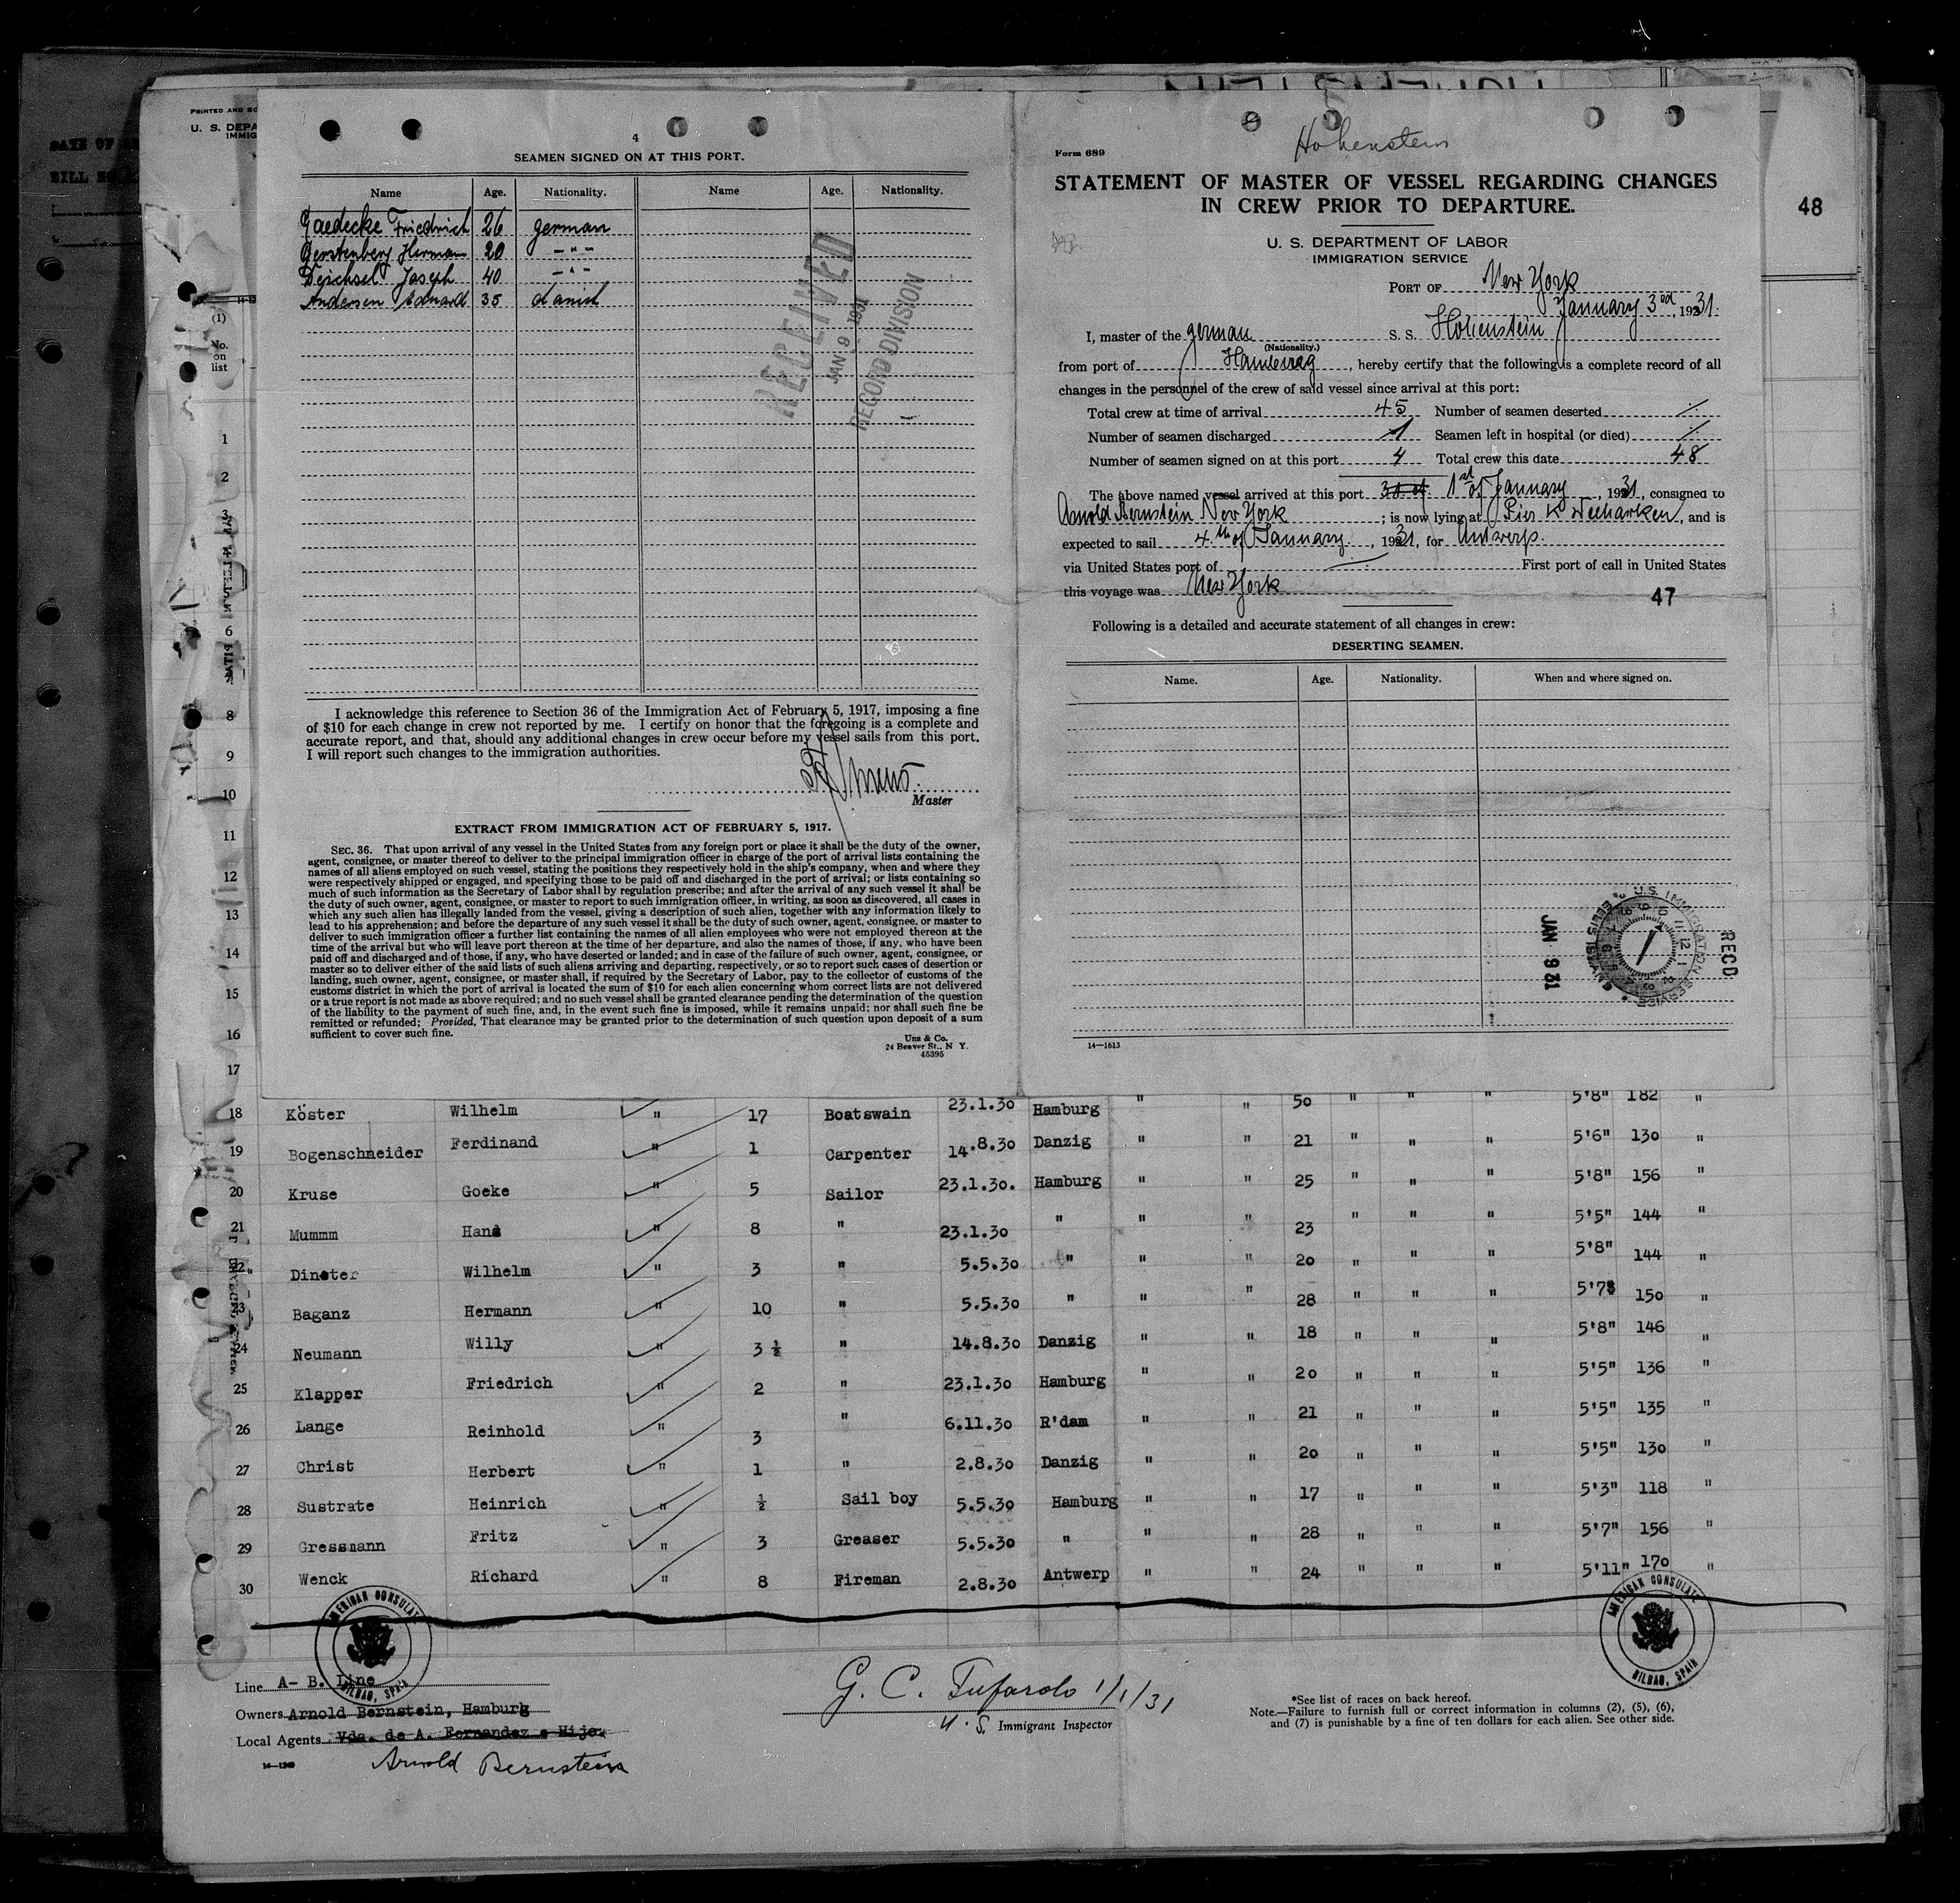 PRINTED AND
U. S. DEPA
IMMIG
4
SEAMEN SIGNED ON AT THIS PORT.
Name Age. Nationality. Name Age. Nationality.
Gaedecke Friedrich 26 german
Gerstenberg Herman 20 – " –
Deichsel Joseph 40 – " –
Andersen Eduard 35 danish
RECEIVED
JAN 9 1931
RECORD DIVISION
I acknowledge this reference to Section 36 of the Immigration Act of February 5, 1917, imposing a fine
of $10 for each change in crew not reported by me. I certify on honor that the foregoing is a complete and
accurate report, and that, should any additional changes in crew occur before my vessel sails from this port.
I will report such changes to the immigration authorities.
Master
EXTRACT FROM IMMIGRATION ACT OF FEBRUARY 5, 1917.
SEC. 36. That upon arrival of any vessel in the United States from any foreign port or place it shall be the duty of the owner,
agent, consignee, or master thereof to deliver to the principal immigration officer in charge of the port of arrival lists containing the
names of all aliens employed on such vessel, stating the positions they respectively hold in the ship's company, when and where they
were respectively shipped or engaged, and specifying those to be paid off and discharged in the port of arrival; or lists containing so
much of such information as the Secretary of Labor shall by regulation prescribe; and after the arrival of any such vessel it shall be
the duty of such owner, agent, consignee, or master to report to such immigration officer, in writing, as soon as discovered, all cases in
which any such alien has illegally landed from the vessel, giving a description of such alien, together with any information likely to
lead to his apprehension; and before the departure of any such vessel it shall be the duty of such owner, agent, consignee, or master to
deliver to such immigration officer a further list containing the names of all alien employees who were not employed thereon at the
time of the arrival but who will leave port thereon at the time of her departure, and also the names of those, if any, who have been
paid off and discharged and of those, if any, who have deserted or landed; and in case of the failure of such owner, agent, consignee, or
master so to deliver either of the said lists of such aliens arriving and departing, respectively, or so to report such cases of desertion or
landing, such owner, agent, consignee, or master shall, if required by the Secretary of Labor, pay to the collector of customs of the
customs district in which the port of arrival is located the sum of $10 for each alien concerning whom correct lists are not delivered
or a true report is not made as above required; and no such vessel shall be granted clearance pending the determination of the question
of the liability to the payment of such fine, and, in the event such fine is imposed, while it remains unpaid; nor shall such fine be
remitted or refunded; Provided, That clearance may be granted prior to the determination of such question upon deposit of a sum
sufficient to cover such fine.
Unz & Co.
24 Beaver St., N Y.
45395
Hohenstein
Form 689
STATEMENT OF MASTER OF VESSEL REGARDING CHANGES
IN CREW PRIOR TO DEPARTURE.
48
U. S. DEPARTMENT OF LABOR
IMMIGRATION SERVICE
PORT OF New York
January 3rd, 1931.
I, master of the german S. S. Hohenstein
(Nationality.)
from port of Hamburg, hereby certify that the following is a complete record of all
changes in the personnel of the crew of said vessel since arrival at this port:
Total crew at time of arrival 45 Number of seamen deserted ./.
Number of seamen discharged 1 Seamen left in hospital (or died) ./.
Number of seamen signed on at this port 4 Total crew this date 48
The above named vessel arrived at this port 3d of 1st of January, 1931, consigned to
Arnold Bernstein New York; is now lying at Pier K Weehawken, and is
expected to sail 4th of January, 1931, for Antwerp.
via United States port of First port of call in United States
this voyage was New York
47
Following is a detailed and accurate statement of all changes in crew:
DESERTING SEAMEN.
Name. Age. Nationality. When and where signed on.
U.S. IMMIGRATION SERVICE
ELLIS ISLAND
RECD
JAN 9 31
14—1613
(1)
No.
on
list
1
2
3
6
8
9
10
11
12
13
14
15
16
17
18 Köster Wilhelm " 17 Boatswain 23.1.30 Hamburg " " 50 " " " 5'8" 182 "
19 Bogenschneider Ferdinand " 1 Carpenter 14.8.30 Danzig " " 21 " " " 5'6" 130 "
20 Kruse Goeke " 5 Sailor 23.1.30. Hamburg " " 25 " " " 5'8" 156 "
21 Mummm Hans " 8 " 23.1.30 " " " 23 " " " 5'5" 144 "
22 Dinster Wilhelm " 3 " 5.5.30 " " " 20 " " " 5'8" 144 "
23 Baganz Hermann " 10 " 5.5.30 " " " 28 " " " 5'7" 150 "
24 Neumann Willy " 3 ½ " 14.8.30 Danzig " " 18 " " " 5'8" 146 "
25 Klapper Friedrich " 2 " 23.1.30 Hamburg " " 20 " " " 5'5" 136 "
26 Lange Reinhold " 3 " 6.11.30 R'dam " " 21 " " " 5'5" 135 "
27 Christ Herbert " 1 " 2.8.30 Danzig " " 20 " " " 5'5" 130 "
28 Sustrate Heinrich " ½ Sail boy 5.5.30 Hamburg " " 17 " " " 5'3" 118 "
29 Gressmann Fritz " 3 Greaser 5.5.30 " " " 28 " " " 5'7" 156 "
30 Wenck Richard " 8 Fireman 2.8.30 Antwerp " " 24 " " " 5'11" 170 "
AMERICAN CONSULATE
BILBAO, SPAIN
AMERICAN CONSULATE
BILBAO, SPAIN
Line A- B. Line
Owners Arnold Bernstein, Hamburg
Local Agents Vda. de A. Fernandez e Hijo.
Arnold Bernstein
G. C. Tufarolo 1/1/31
U. S. Immigrant Inspector
*See list of races on back hereof.
Note.—Failure to furnish full or correct information in columns (2), (5), (6),
and (7) is punishable by a fine of ten dollars for each alien. See other side.